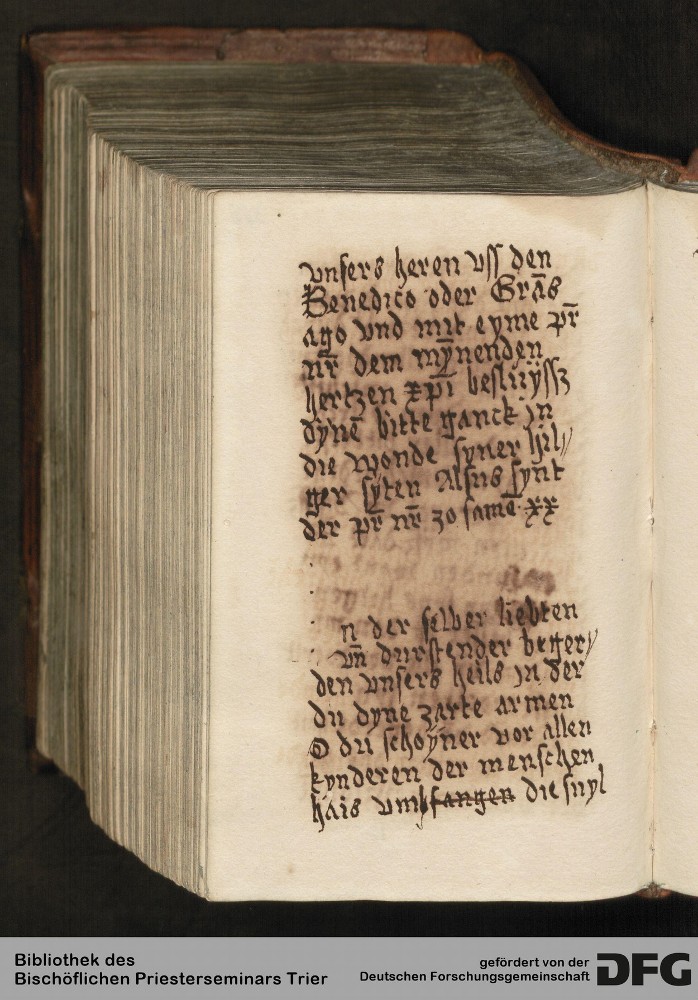 vnsers heren vss den
Benedico oder Grãs
ago vnd mit eyme pr̄
nr̄ dem mỹnenden
hertzen xp̄i besluÿssz
dÿnẽ bitte ganck jn
die wonde syner hil/
ger sÿten Alsus synt
der pr̄ nr̄ zo samẽ xx
n der selber liebten
vn̄ durstender beger/
den vnsers heils jn der
du dyne zarte armen
O du schoÿner vor allen
kynderen der menschen
hais vmbfangen die suyl
Bibliothek des
Bischöflichen Priesterseminars Trier
gefördert von der
Deutschen Forschungsgemeinschaft
DFG